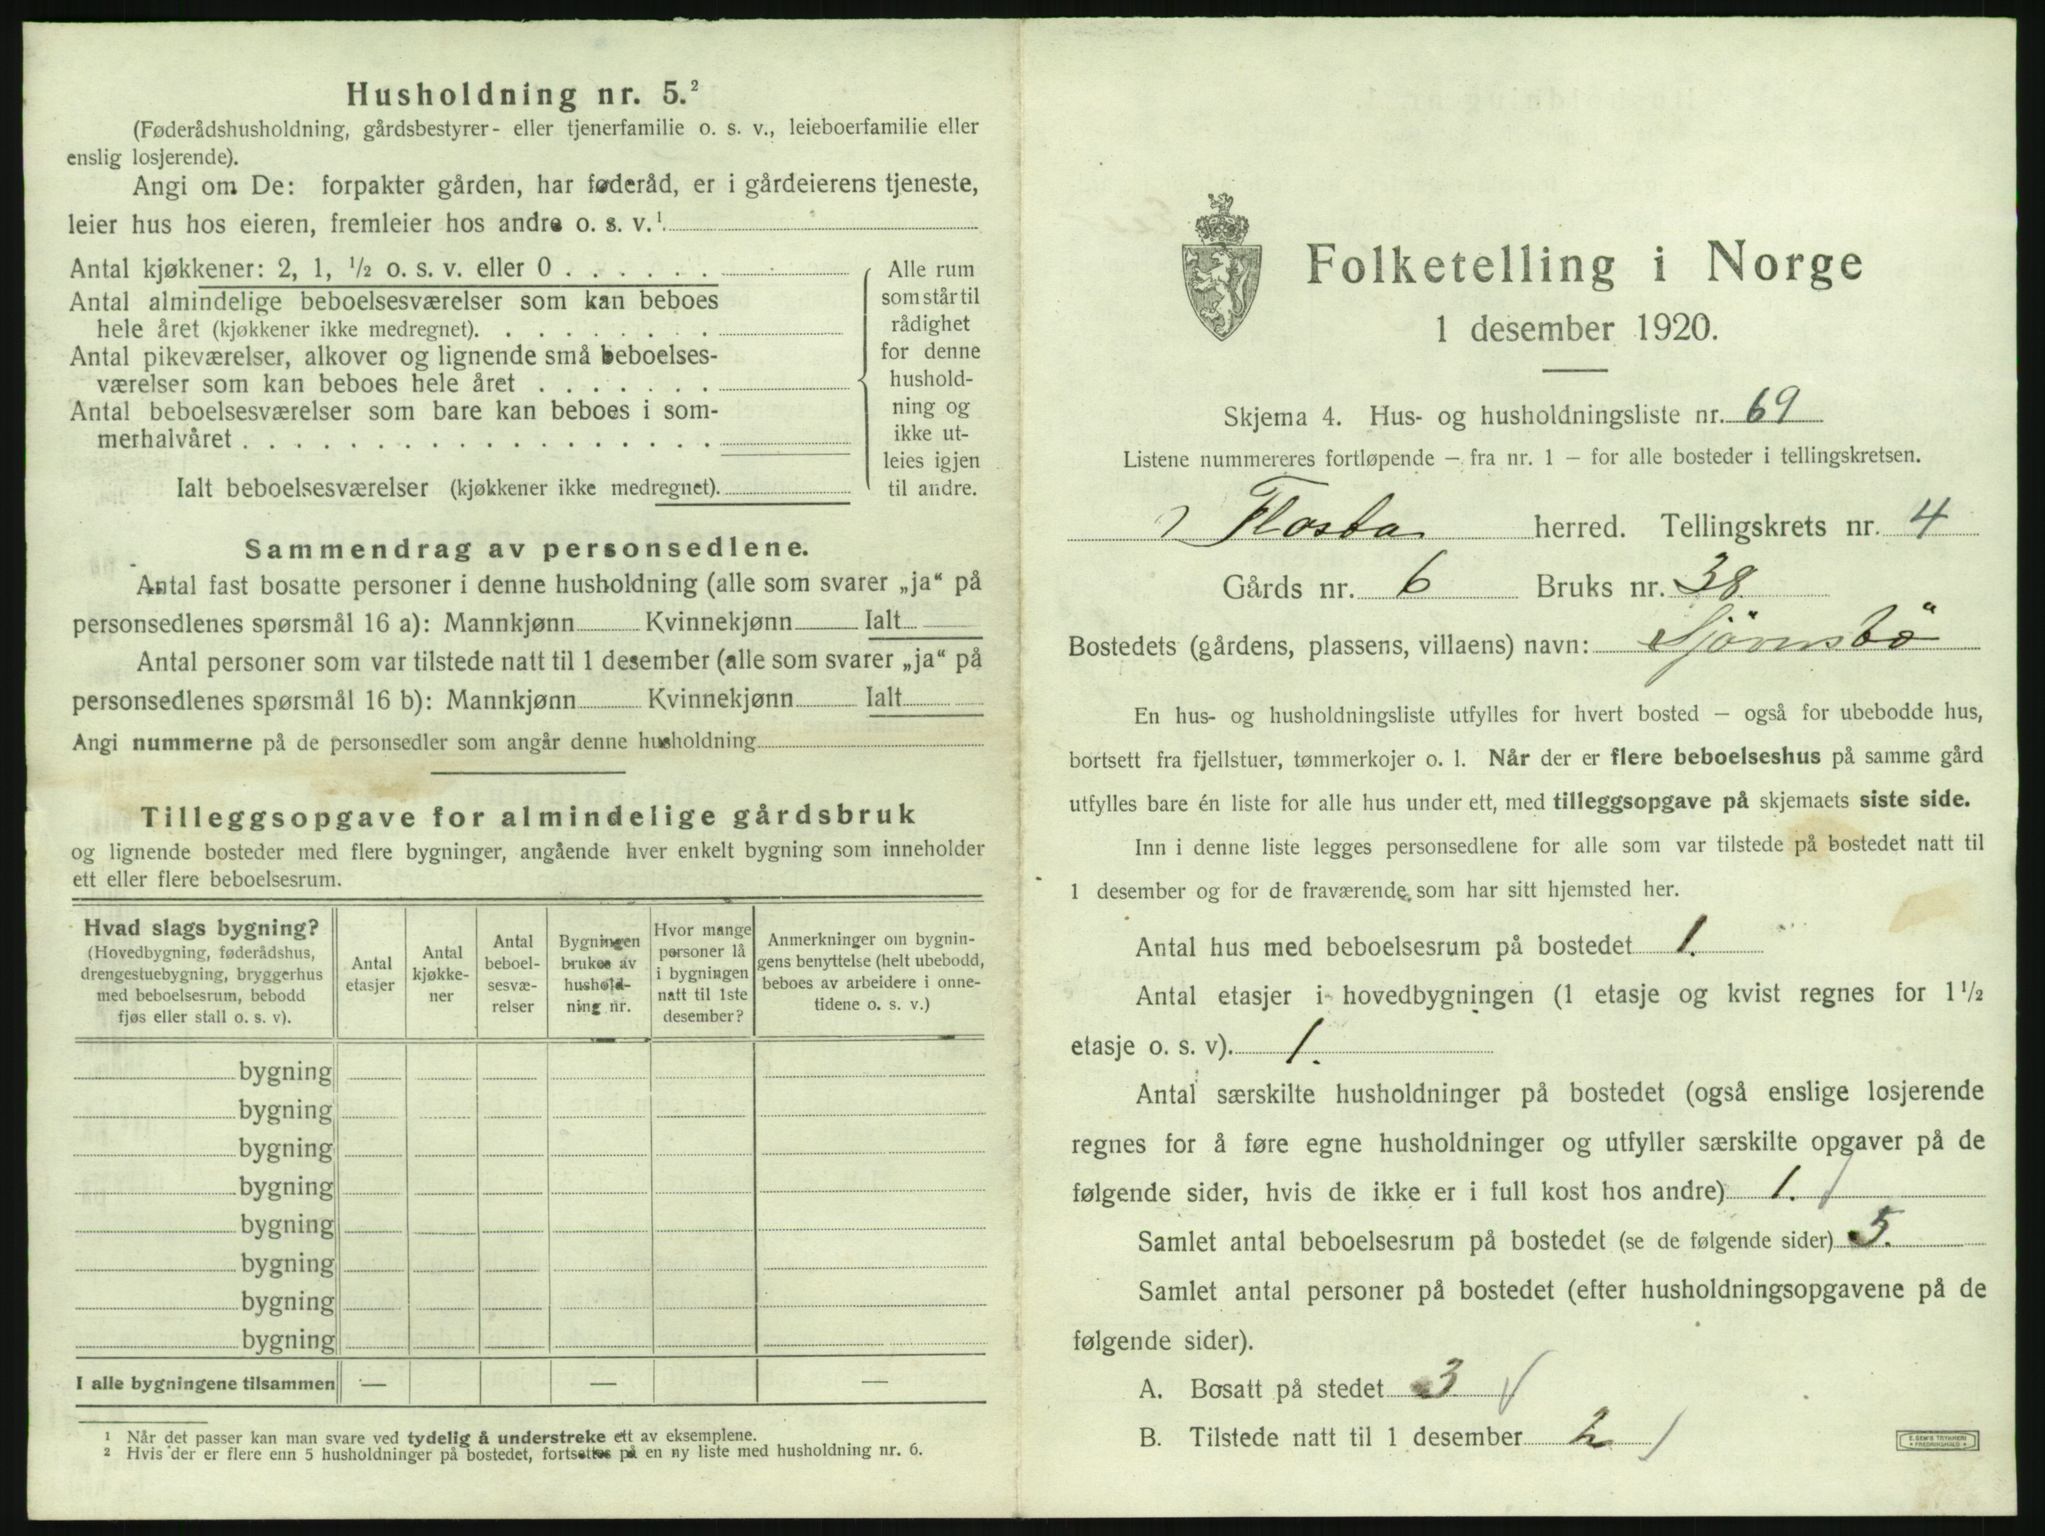 Husholdning nr. 5.²
(Føderådshusholdning, gårdsbestyrer- eller tjenerfamilie o. s. v., leieboerfamilie eller
enslig losjerende).
Angi om De: forpakter gården, har føderåd, er i gårdeierens tjeneste,
leier hus hos eieren, fremleier hos andre o. s. v.¹
Antal kjøkkener: 2, 1, ½ o. s. v. eller 0 . . . . . .
Antal almindelige beboelsesværelser som kan beboes
hele året (kjøkkener ikke medregnet). . . . . . . . .
Antal pikeværelser, alkover og lignende små beboelses-
værelser som kan beboes hele året . . . . . . .
Antal beboelsesværelser som bare kan beboes i som-
merhalvåret . . . . . . . . . . . . . . . . . .
Ialt beboelsesværelser (kjøkkener ikke medregnet).
Alle rum
som står til
rådighet
for denne
hushold-
ning og
ikke ut-
leies igjen
til andre.
Sammendrag av personsedlene.
Antal fast bosatte personer i denne husholdning (alle som svarer „ja“ på
personsedlenes spørsmål 16 a): Mannkjønn Kvinnekjønn Ialt
Antal personer som var tilstede natt til 1 desember (alle som svarer „ja“ på
personsedlenes spørsmål 16 b): Mannkjønn Kvinnekjønn Ialt
Angi nummerne på de personsedler som angår denne husholdning
Tilleggsopgave for almindelige gårdsbruk
og lignende bosteder med flere bygninger, angående hver enkelt bygning som inneholder
ett eller flere beboelsesrum.
Hvad slags bygning?
(Hovedbygning, føderådshus,
drengestuebygning, bryggerhus
med beboelsesrum, bebodd
fjøs eller stall o. s. v).
Antal
etasjer
Antal
kjøkke-
ner
Antal
beboel-
sesvæ-
relser
Bygningen
brukes av
hushold-
ning nr.
Hvor mange
personer lå
i bygningen
natt til 1ste
desember?
Anmerkninger om bygnin-
gens benyttelse (helt ubebodd,
beboes av arbeidere i onne-
tidene o. s. v.)
bygning
bygning
bygning
bygning
bygning
bygning
bygning
bygning
I alle bygningene tilsammen — — —
¹ Når det passer kan man svare ved tydelig å understreke ett av eksemplene.
² Hvis der er flere enn 5 husholdninger på bostedet, fortsettes på en ny liste med husholdning nr. 6.
Folketelling i Norge
1 desember 1920.
Skjema 4. Hus- og husholdningsliste nr. 69
Listene nummereres fortløpende – fra nr. 1 – for alle bosteder i tellingskretsen.
Flosta herred. Tellingskrets nr. 4
Gårds nr. 6 Bruks nr. 38
Bostedets (gårdens, plassens, villaens) navn: Sjönsbö
En hus- og husholdningsliste utfylles for hvert bosted – også for ubebodde hus,
bortsett fra fjellstuer, tømmerkojer o. l. Når der er flere beboelseshus på samme gård
utfylles bare én liste for alle hus under ett, med tilleggsopgave på skjemaets siste side.
Inn i denne liste legges personsedlene for alle som var tilstede på bostedet natt til
1 desember og for de fraværende som har sitt hjemsted her.
Antal hus med beboelsesrum på bostedet 1.
Antal etasjer i hovedbygningen (1 etasje og kvist regnes for 1½
etasje o. s. v). 1.
Antal særskilte husholdninger på bostedet (også enslige losjerende
regnes for å føre egne husholdninger og utfyller særskilte opgaver på de
følgende sider, hvis de ikke er i full kost hos andre) 1.
Samlet antal beboelsesrum på bostedet (se de følgende sider) 5.
Samlet antal personer på bostedet (efter husholdningsopgavene på de
følgende sider).
A. Bosatt på stedet 3
B. Tilstede natt til 1 desember 2
E. SEM'S TRYKKERI
FREDRIKSHALD